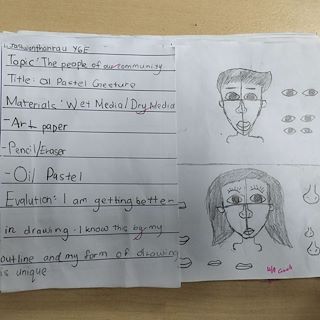 Y6E
Topic: The people of our community
Title: Oil Pastel Gesture
Materials: Wet Media/Dry Media
-Art paper
-Pencil/Eraser
-Oil Pastel
Evalution: I am getting better
in drawing. I know this by my
outline and my form of drawing
is unique
Good